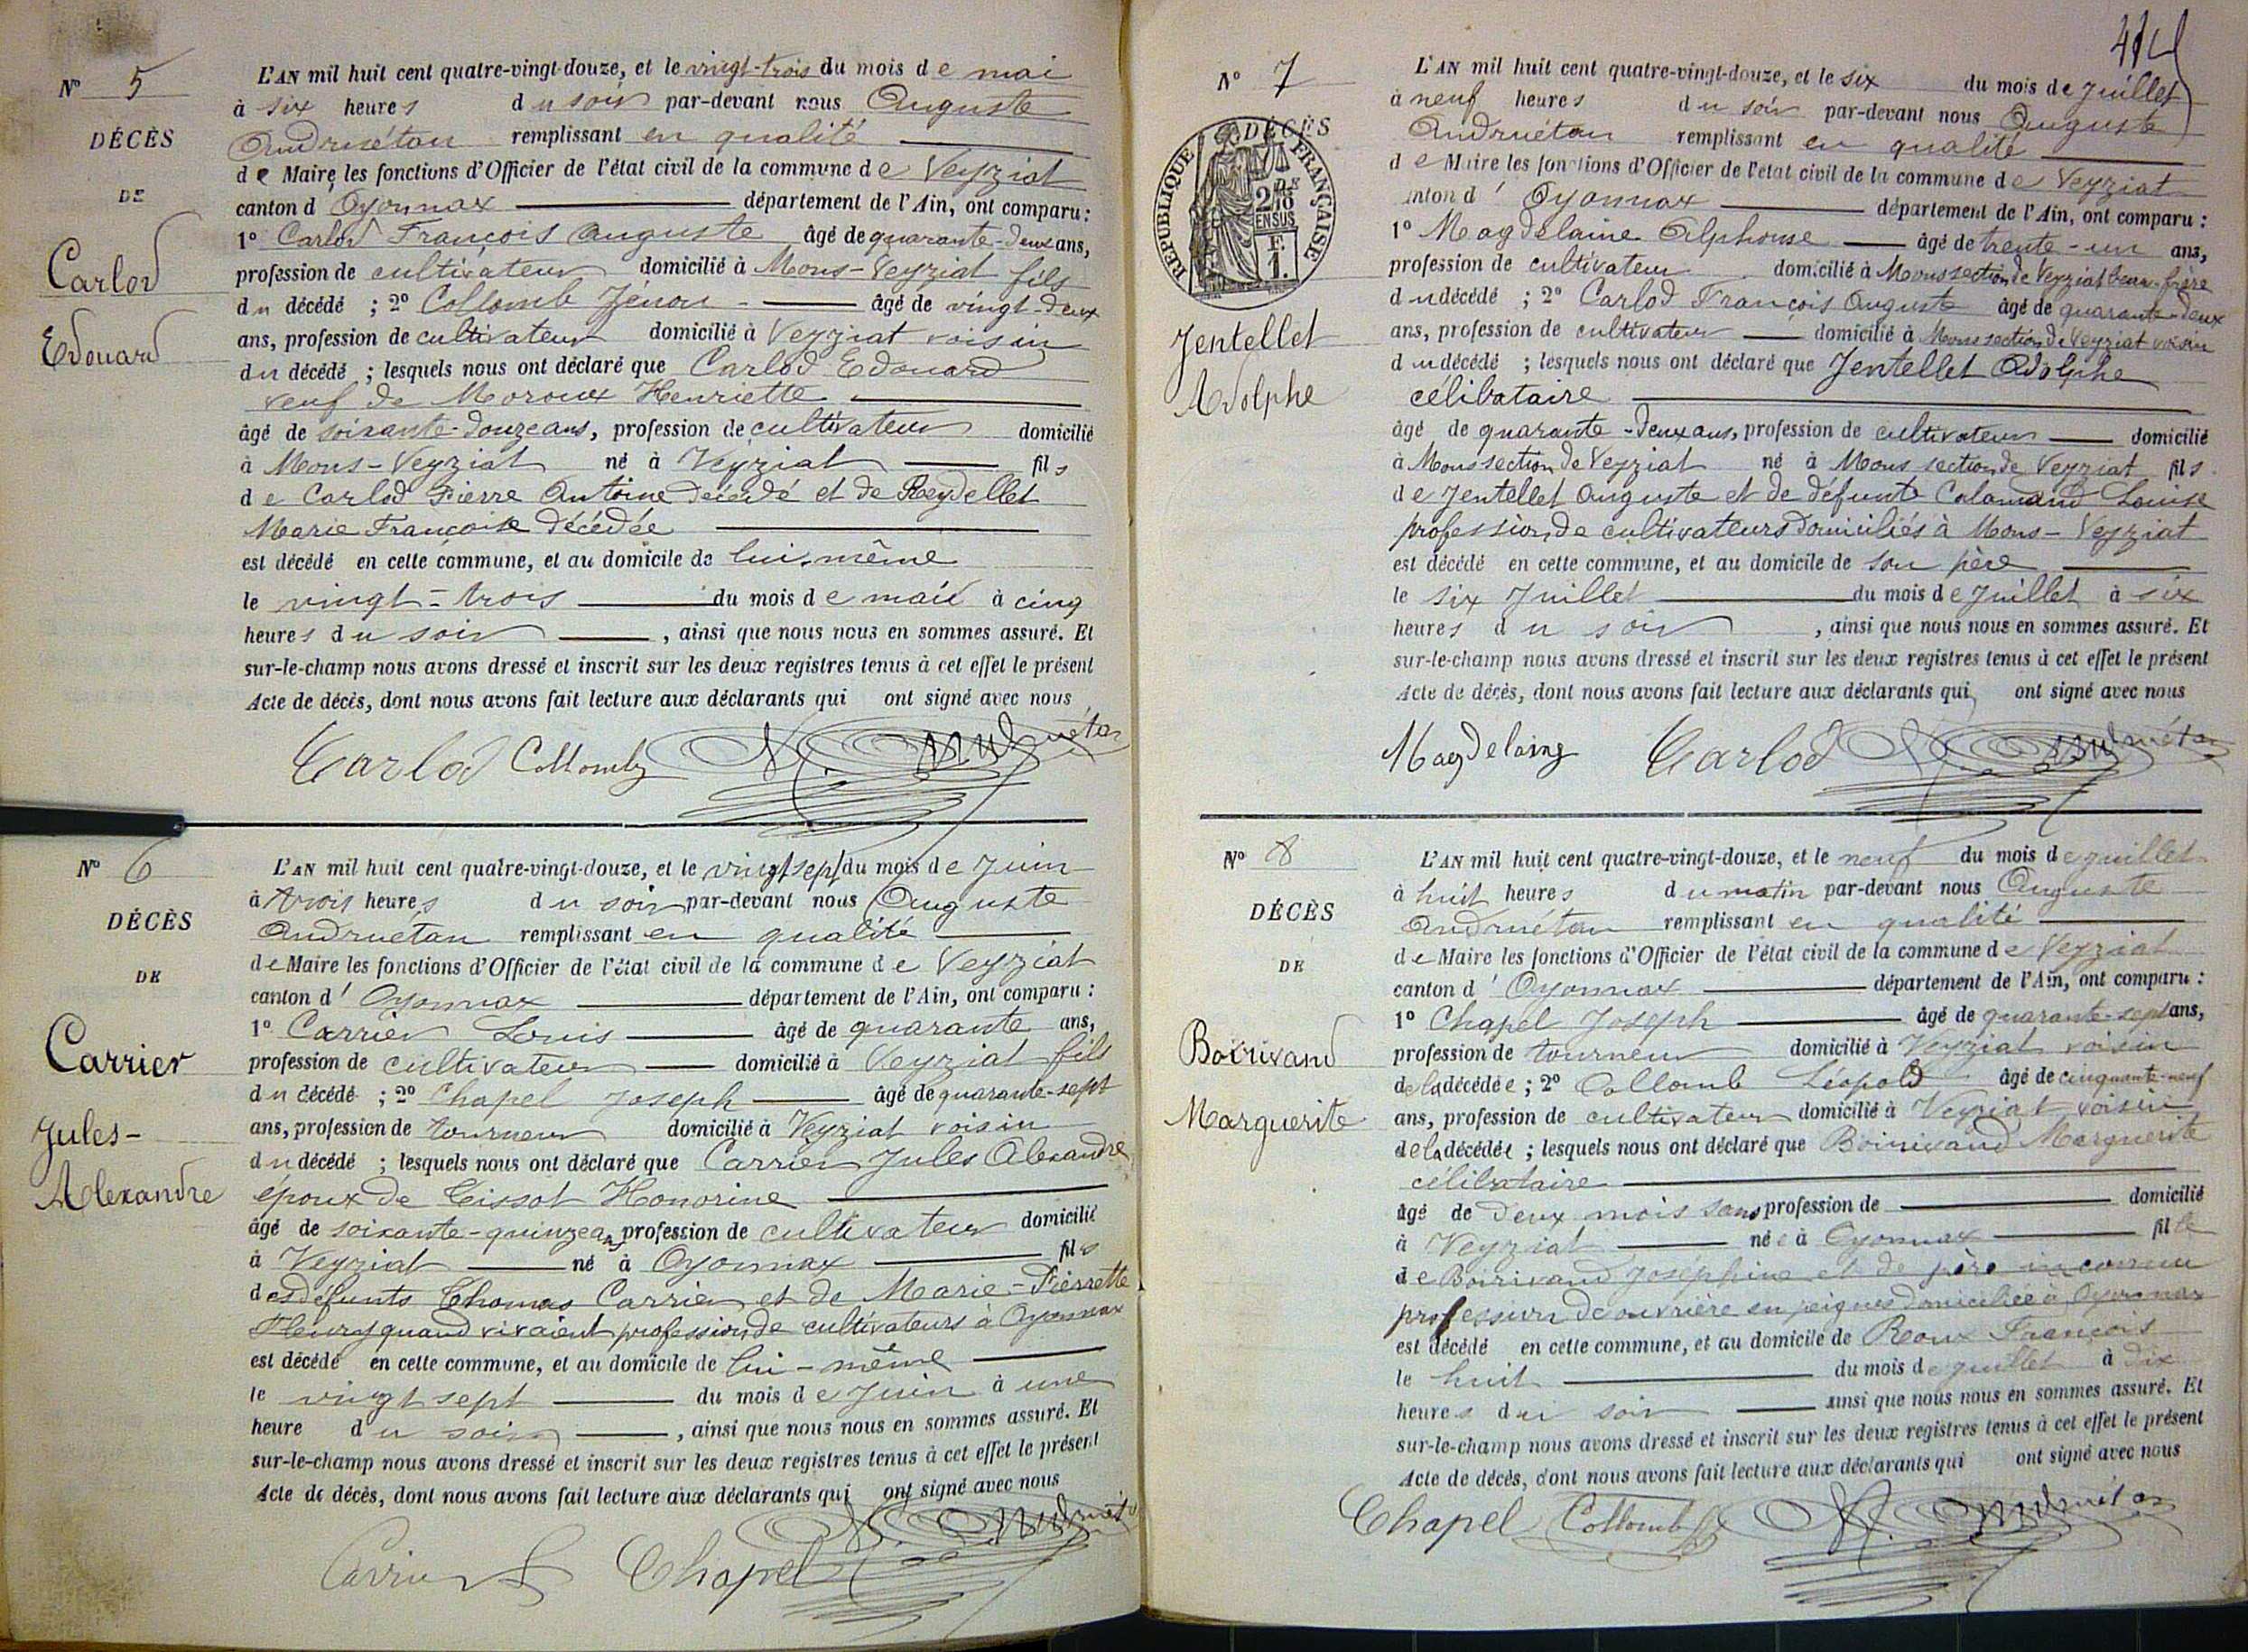 Nº 5
DÉCÈS
DE
Carlod
Edouard
L'AN mil huit cent quatre-vingt-douze, et le vingt-trois du mois de mai
à six heures du soir par-devant nous Auguste
Andruétan remplissant en qualité
de Maire les fonctions d'Officier de l'état civil de la commune de Veyziat
canton d Oyonnax département de l'Ain, ont comparu :
1º Carlod François Auguste âgé de quarante-deux ans,
profession de cultivateur domicilié à Mons-Veyziat fils
du décédé ; 2º Collomb Zénon âgé de vingt-deux
ans, profession de cultivateur domicilié à Veyziat voisin
du décédé ; lesquels nous ont déclaré que Carlod Edouard
veuf de Moroux Henriette
âgé de soixante-douze ans, profession de cultivateur domicilié
à Mons-Veyziat né à Veyziat fils
de Carlod Pierre Antoine décédé et de Reydellet
Marie Françoise décédée
est décédé en cette commune, et au domicile de lui-même
le vingt-trois du mois de mai à cinq
heures du soir, ainsi que nous nous en sommes assuré. Et
sur-le-champ nous avons dressé et inscrit sur les deux registres tenus à cet effet le présent
Acte de décès, dont nous avons fait lecture aux déclarants qui ont signé avec nous
Carlod Collomb Andruétan
Nº 6
DÉCÈS
DE
Carrier
Jules-
Alexandre
L'AN mil huit cent quatre-vingt-douze, et le vingt sept du mois de Juin
à trois heures du soir par-devant nous Auguste
Andruétan remplissant en qualité
de Maire les fonctions d'Officier de l'état civil de la commune de Veyziat
canton d' Oyonnax département de l'Ain, ont comparu :
1º Carrier Louis âgé de quarante ans,
profession de cultivateur domicilié à Veyziat fils
du décédé ; 2º Chapel Joseph âgé de quarante-sept
ans, profession de tourneur domicilié à Veyziat voisin
du décédé ; lesquels nous ont déclaré que Carrier Jules Alexandre
époux de Tissot Honorine
âgé de soixante-quinze ans profession de cultivateur domicilié
à Veyziat né à Oyonnax fils
des défunts Thomas Carrier et de Marie-Pierrette
Fleury quand vivaient profession de cultivateurs à Oyonnax
est décédé en cette commune, et au domicile de lui-même
le vingt sept du mois de Juin à une
heure du soir, ainsi que nous nous en sommes assuré. Et
sur-le-champ nous avons dressé et inscrit sur les deux registres tenus à cet effet le présent
Acte de décès, dont nous avons fait lecture aux déclarants qui ont signé avec nous
Carrier Chapel Andruétan
Nº 7
DÉCÈS
RÉPUBLIQUE FRANÇAISE
2/10
EN SUS
F.
1.
Jentellet
Adolphe
L'AN mil huit cent quatre-vingt-douze, et le six du mois de Juillet
à neuf heures du soir par-devant nous Auguste
Andruétan remplissant en qualité
de Maire les fonctions d'Officier de l'état civil de la commune de Veyziat
canton d' Oyonnax département de l'Ain, ont comparu :
1º Magdelaine Alphonse âgé de trente-un ans,
profession de cultivateur domicilié à Mons section de Veyziat beau-frère
du décédé ; 2º Carlod François Auguste âgé de quarante-deux
ans, profession de cultivateur domicilié à Mons section de Veyziat voisin
du décédé ; lesquels nous ont déclaré que Jentellet Adolphe
célibataire
âgé de quarante-deux ans, profession de cultivateur domicilié
à Mons section de Veyziat né à Mons section de Veyziat fils
de Jentellet Auguste et de défunte Calamand Louise
profession de cultivateurs domiciliés à Mons-Veyziat
est décédé en cette commune, et au domicile de son père
le six Juillet du mois de Juillet à six
heures du soir, ainsi que nous nous en sommes assuré. Et
sur-le-champ nous avons dressé et inscrit sur les deux registres tenus à cet effet le présent
Acte de décès, dont nous avons fait lecture aux déclarants qui ont signé avec nous
Magdelaine Carlod Andruétan
Nº 8
DÉCÈS
DE
Boirivand
Marguerite
L'AN mil huit cent quatre-vingt-douze, et le neuf du mois de juillet
à huit heures du matin par-devant nous Auguste
Andruétan remplissant en qualité
de Maire les fonctions d'Officier de l'état civil de la commune de Veyziat
canton d' Oyonnax département de l'Ain, ont comparu :
1º Chapel Joseph âgé de quarante-sept ans,
profession de tourneur domicilié à Veyziat voisin
de la décédée ; 2º Collomb Léopold âgé de cinquante-neuf
ans, profession de cultivateur domicilié à Veyziat voisin
de la décédée ; lesquels nous ont déclaré que Boirivand Marguerite
célibataire
âgé de deux mois sans profession de domicilié
à Veyziat née à Oyonnax fille
de Boirivand Joséphine et de père inconnu
profession de ouvrière en peignes domiciliée à Oyonnax
est décédé en cette commune, et au domicile de Roux François
le huit du mois de juillet à dix
heures du soir ainsi que nous nous en sommes assuré. Et
sur-le-champ nous avons dressé et inscrit sur les deux registres tenus à cet effet le présent
Acte de décès, dont nous avons fait lecture aux déclarants qui ont signé avec nous
Chapel Collomb Andruétan